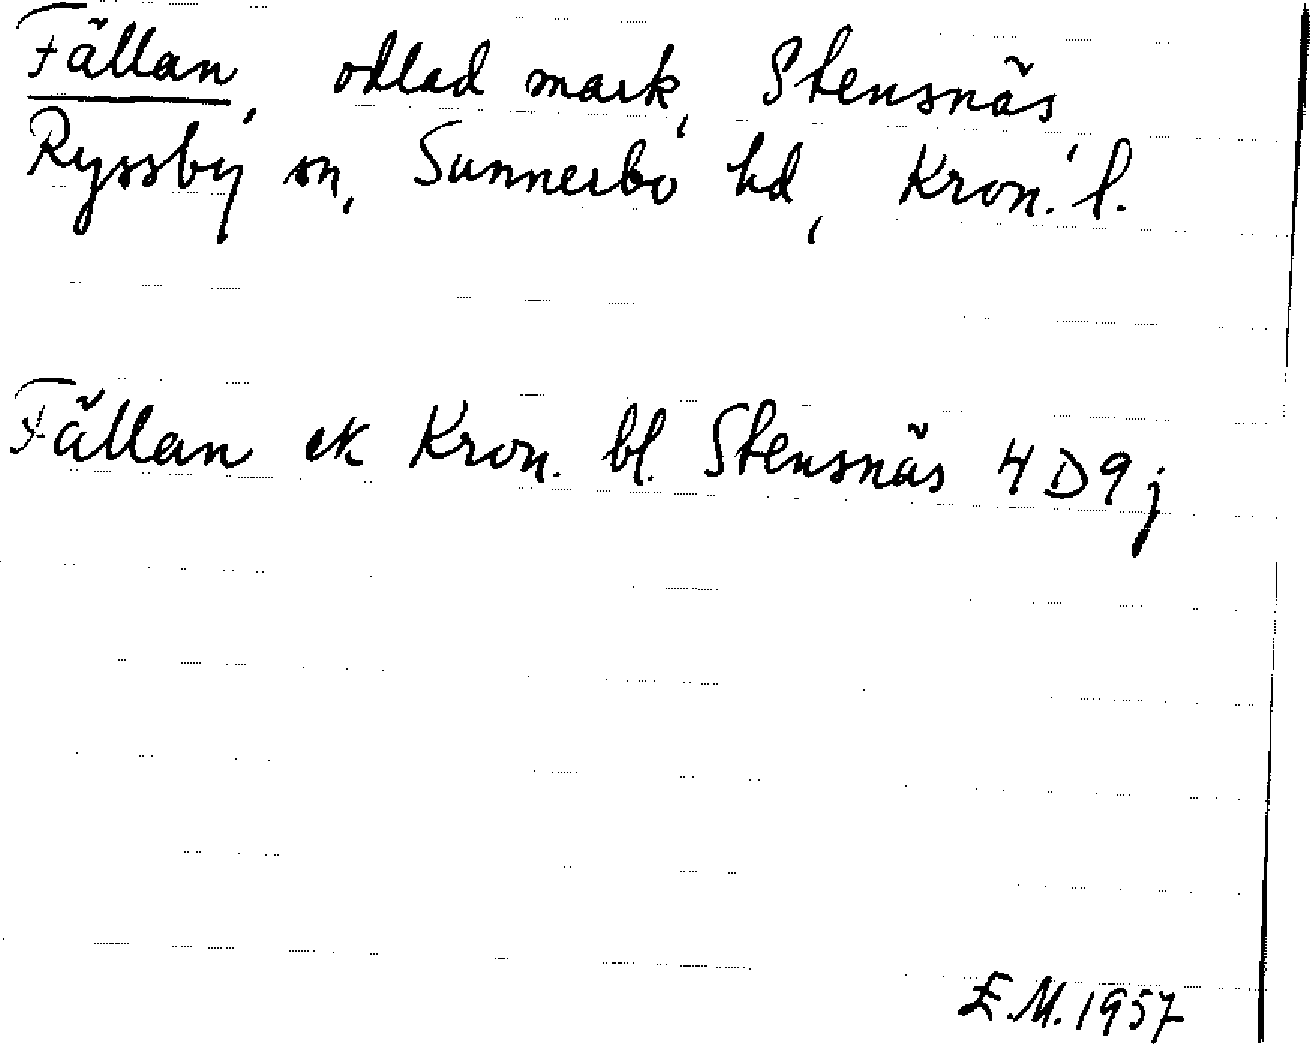 Fällan, odlad mark, Stensnäs,
Ryssby sn, Sunnerbo hd, Kron. l.
Fällan ek Kron. bl. Stensnäs 4D9j
E.M. 1957